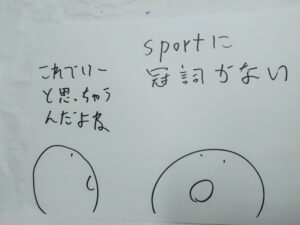 これでいー
と思っちゃう
んだよね
sportに
冠詞がない